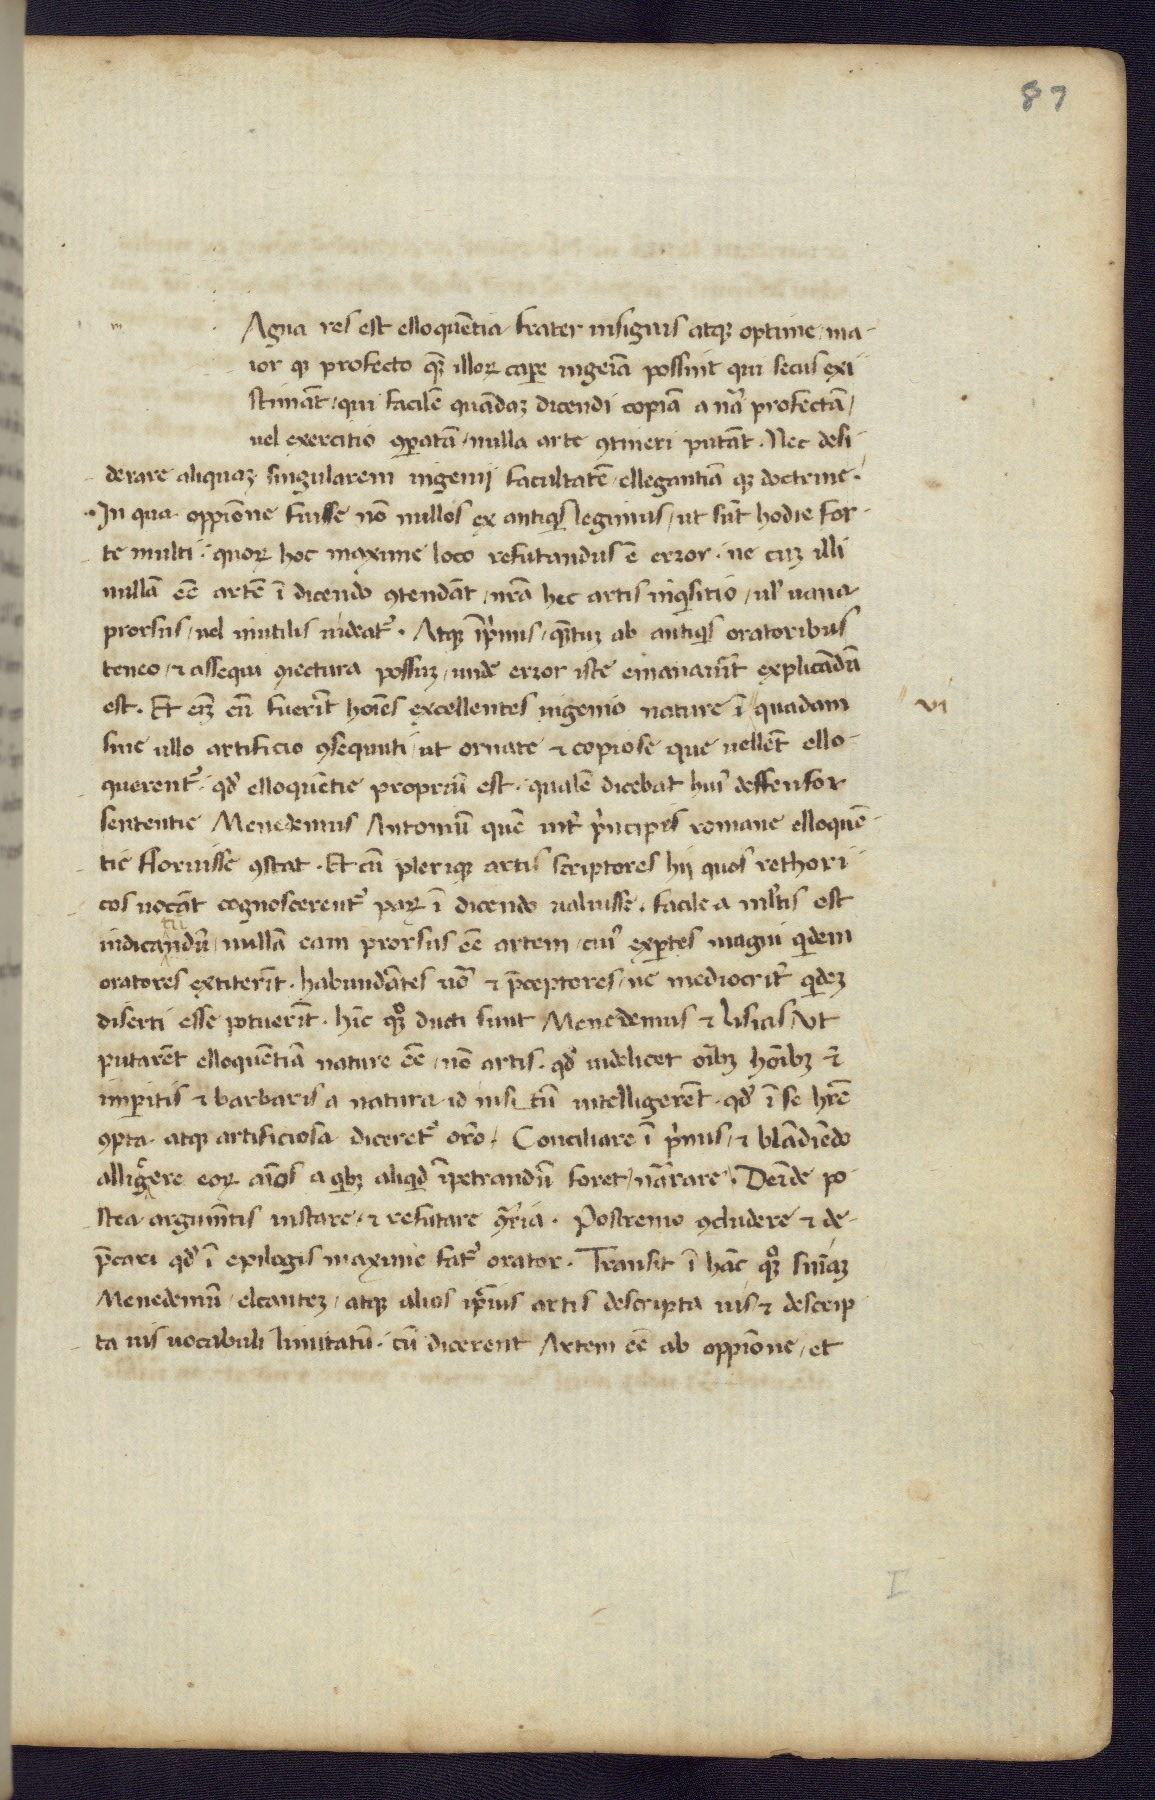 87
m
Agna res est elloquētia frater insignis atqꝫ optime ma-
ior qꝫ profecto qꝫ̄ illoꝝ cape ingeīa possint qui secus exi
stimāt qui facilē quādaꝫ dicendi copiā a nrā profectā
uel exercitio ꝯparatā nulla arte ꝯtineri putāt. Nec desi
derare aliquaꝫ singularem ingenij facultatē ellegantiā qꝫ doctrine.
In qua oppiōne fuisse nō nullos ex antiqis legimus ut sūt hodie for
te multi. quoꝝ hoc maxime loco refutandus ē error. ne cuꝫ illi
nullā eē artē ī dicendo ꝯtendāt nrā hec artis inqisitio ul' uana
prorsus uel inutilis uideat᷑. Atqꝫ īprimis qꝫ̄tuꝫ ab antiqis oratoribus
teneo & assequi ꝯiectura possuꝫ unde error iste emanauīt explicādū
est. Et eīꝫ cū fuerīt hoīes excellentes ingenio nature ī quadam
vi
sine ullo artificio ꝯsequuti ut ornate & copiose que uellēt ello-
querent᷑. qd̄ elloquētie propriū est. qualē dicebat hui' deffensor
sententie Menedemus Antoniū quē int᷑ principes romane elloquē
tie floruisse ꝯstat. Et cū pleriqꝫ artis scriptores hij quos rethori
cos uocāt cognoscerent᷑ paꝝ ī dicendo ualuisse. facile a mltis est
iudicandū nullā eam prorsus eē artem cui' expertes magni qidem
oratores extiterīt. habundātes uo & p̄ceptores ne mediocrit᷑ qideꝫ
diserti esse potuerīt. hīc qꝫ° ducti sunt Menedemus & Lisias ut
putarēt elloquētiā nature eē nō artis. qd̄ uidelicet oībꝫ hoībꝫ &
imperitis & barbaris a natura id insitū intelligerēt. qd̄ ī se hrē
ꝯpta atqꝫ artificiosa diceret᷑ orō. Conciliare ī primis & blādiēdo
alligere eoꝝ aīos a qibꝫ aliqid īpetrandū foret narrare. Deīde po
stea argumītis instare & refutare ꝯtraria. Postremo ꝯcludere & de-
p̄cari qd̄ ī epilogis maxime fat᷑ orator. Transit ī hāc qꝫ° sniāꝫ
Menedemū elcanteꝫ atqꝫ alios ipius artis descripta uis & descrip
ta uis uocabuli limitatū. cū dicerent Artem eē ab oppiōne et
I